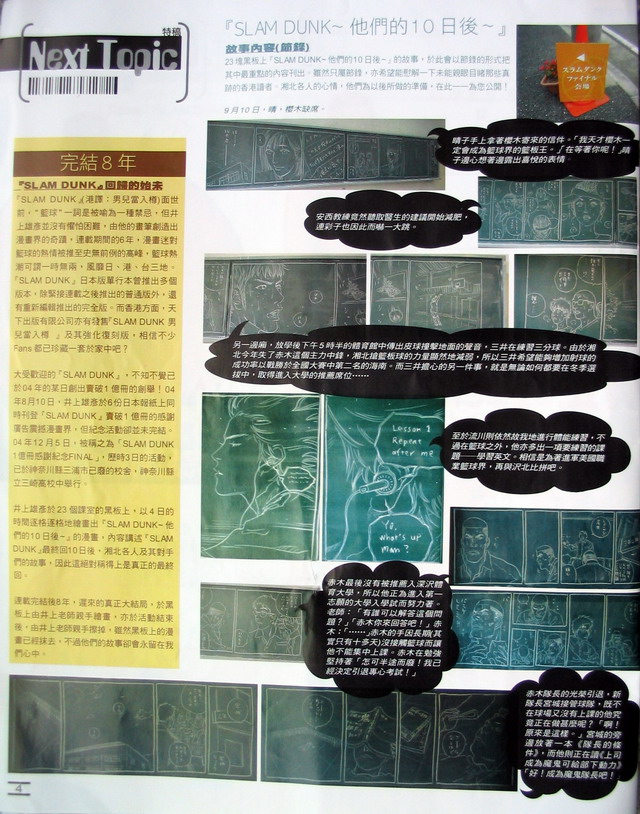 特稿
Next Topic
『SLAM DUNK~ 他們的10 日後~』
故事內容(節錄)
23塊黑板上「SLAM DUNK~他們的10日後~」的故事，於此會以節錄的形式把
其中最重點的內容刊出。雖然只屬節錄，亦希望能慰解一下未能親眼目睹那些真
跡的香港讀者。湘北各人的心情，他們為以後所做的準備，在此一一為您公開！
9月10日，晴，櫻木缺席。
スラムダンク
ファイナル
会場
完結8年
『SLAM DUNK』回歸的始末
「SLAM DUNK」(港譯：男兒當入樽)面世
前，"籃球"一詞是被喻為一種禁忌，但井
上雄彥並沒有懼怕困難，由他的畫筆創造出
漫畫界的奇蹟，連載期間的6年，漫畫迷對
籃球的熱情被推至史無前例的高峰，籃球熱
潮可謂一時無兩，風靡日、港、台三地。
「SLAM DUNK」日本版單行本曾推出多個
版本，除緊接連載之後推出的普通版外，還
有重新編輯推出的完全版。而香港方面，天
下出版有限公司亦有發售「SLAM DUNK 男
兒當入樽 」及其強化復刻版，相信不少
Fans 都已珍藏一套於家中吧？
大受歡迎的「SLAM DUNK」，不知不覺已
於04年的某日創出賣破1億冊的創舉！04
年8月10日，井上雄彥於6份日本報紙上同
時刊登「SLAM DUNK」賣破1億冊的感謝
廣告震撼漫畫界，但紀念活動卻並未完結。
04年12月5日，被稱之為「SLAM DUNK
1億冊感謝紀念FINAL」，歷時3日的活動，
已於神奈川縣三浦市已廢的校舍，神奈川縣
立三崎高校中舉行。
井上雄彥於23個課室的黑板上，以4日的
時間逐格逐格地繪畫出「SLAM DUNK~他
們的10日後~」的漫畫，內容講述「SLAM
DUNK」最終回10日後，湘北各人及其對手
們的故事，因此這絕對稱得上是真正的最終
回。
連載完結後8年，遲來的真正大結局，於黑
板上由井上老師親手繪畫，亦於活動結束
後，由井上老師親手擦掉，雖然黑板上的漫
畫已經抹去，不過他們的故事卻會永留在我
們心中。
晴子手上拿著櫻木寄來的信件。「我天才櫻木一
定會成為籃球界的籃板王。」「在等著你呢！」晴
子邊心想著邊露出喜悅的表情。
安西教練竟然聽取醫生的建議開始減肥，
連彩子也因此而嚇一大跳。
另一邊廂，放學後下午5時半的體育館中傳出皮球撞擊地面的聲音，三井在練習三分球。由於湘
北今年失了赤木這個主力中鋒，湘北搶籃板球的力量顯然地減弱，所以三井希望能夠增加射球的
成功率以戰勝於全國大賽中第二名的海南。而三井擔心的另一件事，就是無論如何都要在冬季選
拔中，取得進入大學的推薦席位……
Lesson 1
Repeat
after me
Yo,
what's up
man?
至於流川則依然故我地進行體能練習，不
過在籃球之外，他亦多出一項要練習的課
題──學習英文。相信是為著進軍美國職
業籃球界，再與沢北比拼吧。
赤木最後沒有被推薦入深沢體
育大學，所以他正為進入第一
志願的大學入學試而努力著。
老師：「有誰可以解答這個問
題？」「赤木你來回答吧！」赤
木：「……」赤木的手因長期(其
實只有十多天)沒接觸籃球而讓
他不能集中上課。赤木在勉強
堅持著「怎可半途而廢！我已
經決定引退專心考試！」
赤木隊長的光榮引退，新
隊長宮城接管球隊，既不
在球場又沒有上課的他究
竟正在做甚麼呢？「啊！
原來是這樣。」宮城的旁
邊放著一本《隊長的條
件》，而他則正在讀《上司
成為魔鬼可給部下動力》
「好！成為魔鬼隊長吧！
4